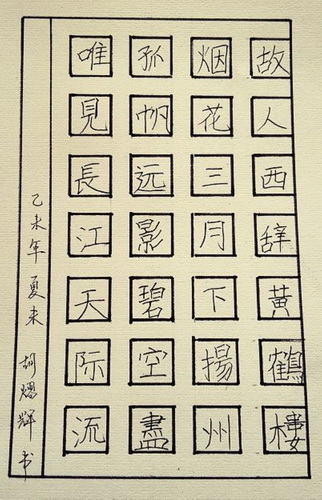 故人西辞黄鶴樓
烟花三月下揚州
孤帆远影碧空盡
唯見長江天际流
乙未年夏末
胡耀輝书